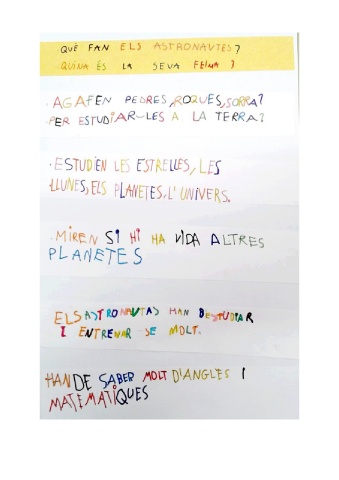 QUÈ FAN ELS ASTRONAUTES?
QUINA ÉS LA SEVA FEINA?
·AGAFEN PEDRES, ROQUES, SORRA?
PER ESTUDIAR-LES A LA TERRA?
·ESTUDIEN LES ESTRELLES, LES
LLUNES, ELS PLANETES, L'UNIVERS.
·MIREN SI HI HA VIDA ALTRES
PLANETES
ELS ASTRONAUTAS HAN DESTUDIAR
I ENTRENAR-SE MOLT.
HAN DE SABER MOLT D'ANGLÈS I
MATEMÀTIQUES